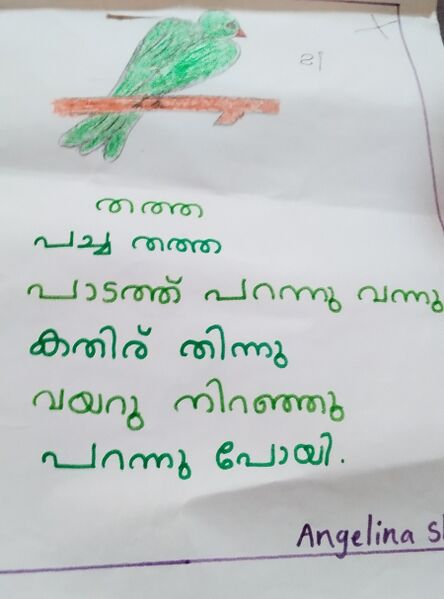 തത്ത
പച്ച തത്ത
പാടത്ത് പറന്നു വന്നു
കതിര് തിന്നു
വയറു നിറഞ്ഞു
പറന്നു പോയി.
Angelina